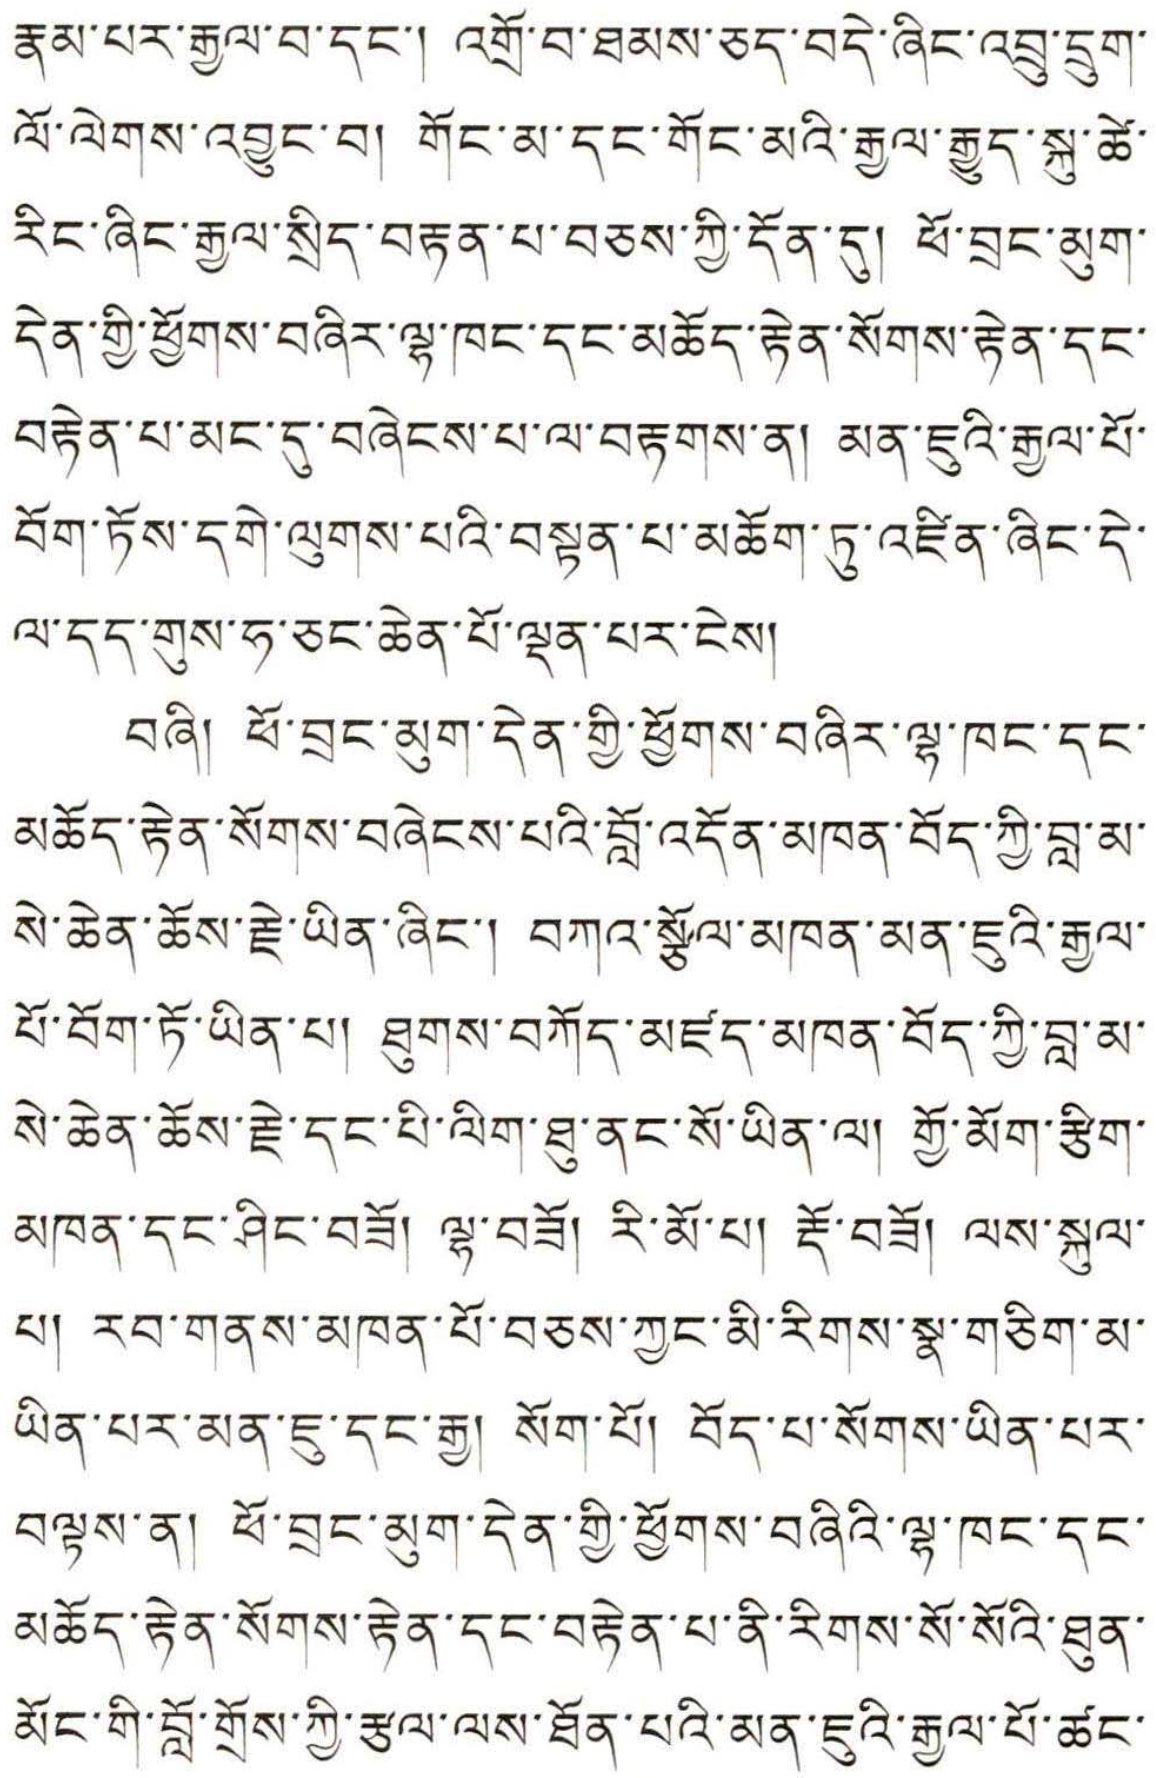 རྣམ་པར་རྒྱལ་བ་དང་། འགྲོ་བ་ཐམས་ཅད་བདེ་ཞིང་འབྲུ་དྲུག་
ལོ་ལེགས་འབྱུང་བ། གོང་མ་དང་གོང་མའི་རྒྱལ་རྒྱུད་སྐུ་ཚེ་
རིང་ཞིང་རྒྱལ་སྲིད་བརྟན་པ་བཅས་ཀྱི་དོན་དུ། ཕོ་བྲང་མུག་
དེན་གྱི་ཕྱོགས་བཞིར་ལྷ་ཁང་དང་མཆོད་རྟེན་སོགས་རྟེན་དང་
བརྟེན་པ་མང་དུ་བཞེངས་པ་ལ་བརྟགས་ན། མན་ཇུའི་རྒྱལ་པོ་
བོག་ཏོས་དགེ་ལུགས་པའི་བསྟན་པ་མཆོག་ཏུ་འཛིན་ཞིང་དེ་
ལ་དད་གུས་ཧ་ཅང་ཆེན་པོ་ལྡན་པར་ངེས།
བཞི། ཕོ་བྲང་མུག་དེན་གྱི་ཕྱོགས་བཞིར་ལྷ་ཁང་དང་
མཆོད་རྟེན་སོགས་བཞེངས་པའི་བློ་འདོན་མཁན་བོད་ཀྱི་བླ་མ་
སེ་ཆེན་ཆོས་རྗེ་ཡིན་ཞིང་། བཀའ་སྩོལ་མཁན་མན་ཇུའི་རྒྱལ་
པོ་བོག་ཏོ་ཡིན་པ། ཐུགས་བཀོད་མཛད་མཁན་བོད་ཀྱི་བླ་མ་
སེ་ཆེན་ཆོས་རྗེ་དང་པི་ལིག་ཐུ་ནང་སོ་ཡིན་ལ། གྱོ་མོག་རྩིག་
མཁན་དང་ཤིང་བཟོ། ལྷ་བཟོ། རི་མོ་པ། རྡོ་བཟོ། ལས་སྐུལ་
པ། རབ་གནས་མཁན་པོ་བཅས་ཀྱང་མི་རིགས་སྣ་གཅིག་མ་
ཡིན་པར་མན་ཇུ་དང་རྒྱ། སོག་པོ། བོད་པ་སོགས་ཡིན་པར་
བལྟས་ན། ཕོ་བྲང་མུག་དེན་གྱི་ཕྱོགས་བཞིའི་ལྷ་ཁང་དང་
མཆོད་རྟེན་སོགས་རྟེན་དང་བརྟེན་པ་ནི་རིགས་སོ་སོའི་ཐུན་
མོང་གི་བློ་གྲོས་ཀྱི་རྩལ་ལས་ཐོན་པའི་མན་ཇུའི་རྒྱལ་པོ་ཚང་